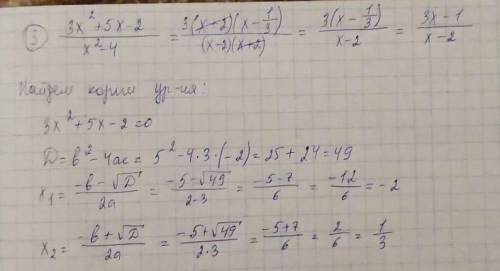 ③ (3x² + 5x - 2)/(x² - 4) = (3(x + 2)(x - 1/3))/((x - 2)(x + 2)) = (3(x - 1/3))/(x - 2) = (3x - 1)/(x - 2)
Найдем корни ур-ия:
3x² + 5x - 2 = 0
D = b² - 4ac = 5² - 4·3·(-2) = 25 + 24 = 49
x₁ = (-b - √D)/(2a) = (-5 - √49)/(2·3) = (-5 - 7)/6 = (-12)/6 = -2
x₂ = (-b + √D)/(2a) = (-5 + √49)/(2·3) = (-5 + 7)/6 = 2/6 = 1/3